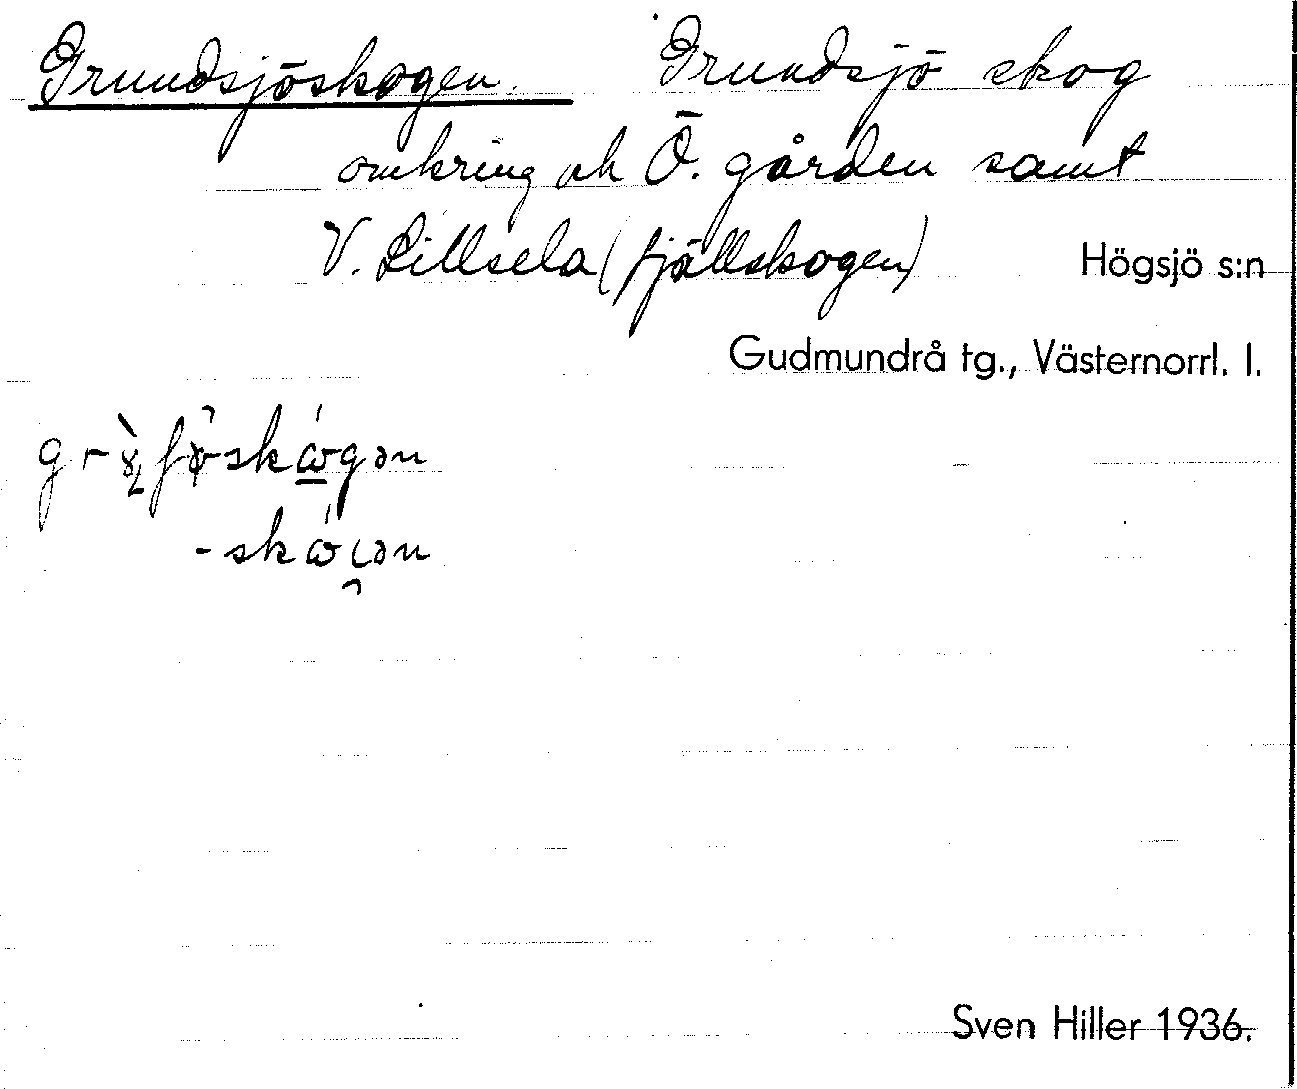 Grundsjöskogen. Grundsjö skog
omkring ok Ö. gården samt
V. Lillsela (fjällskogen) Högsjö s:n
Gudmundrå tg., Västernorrl. l.
Sven Hiller 1936.